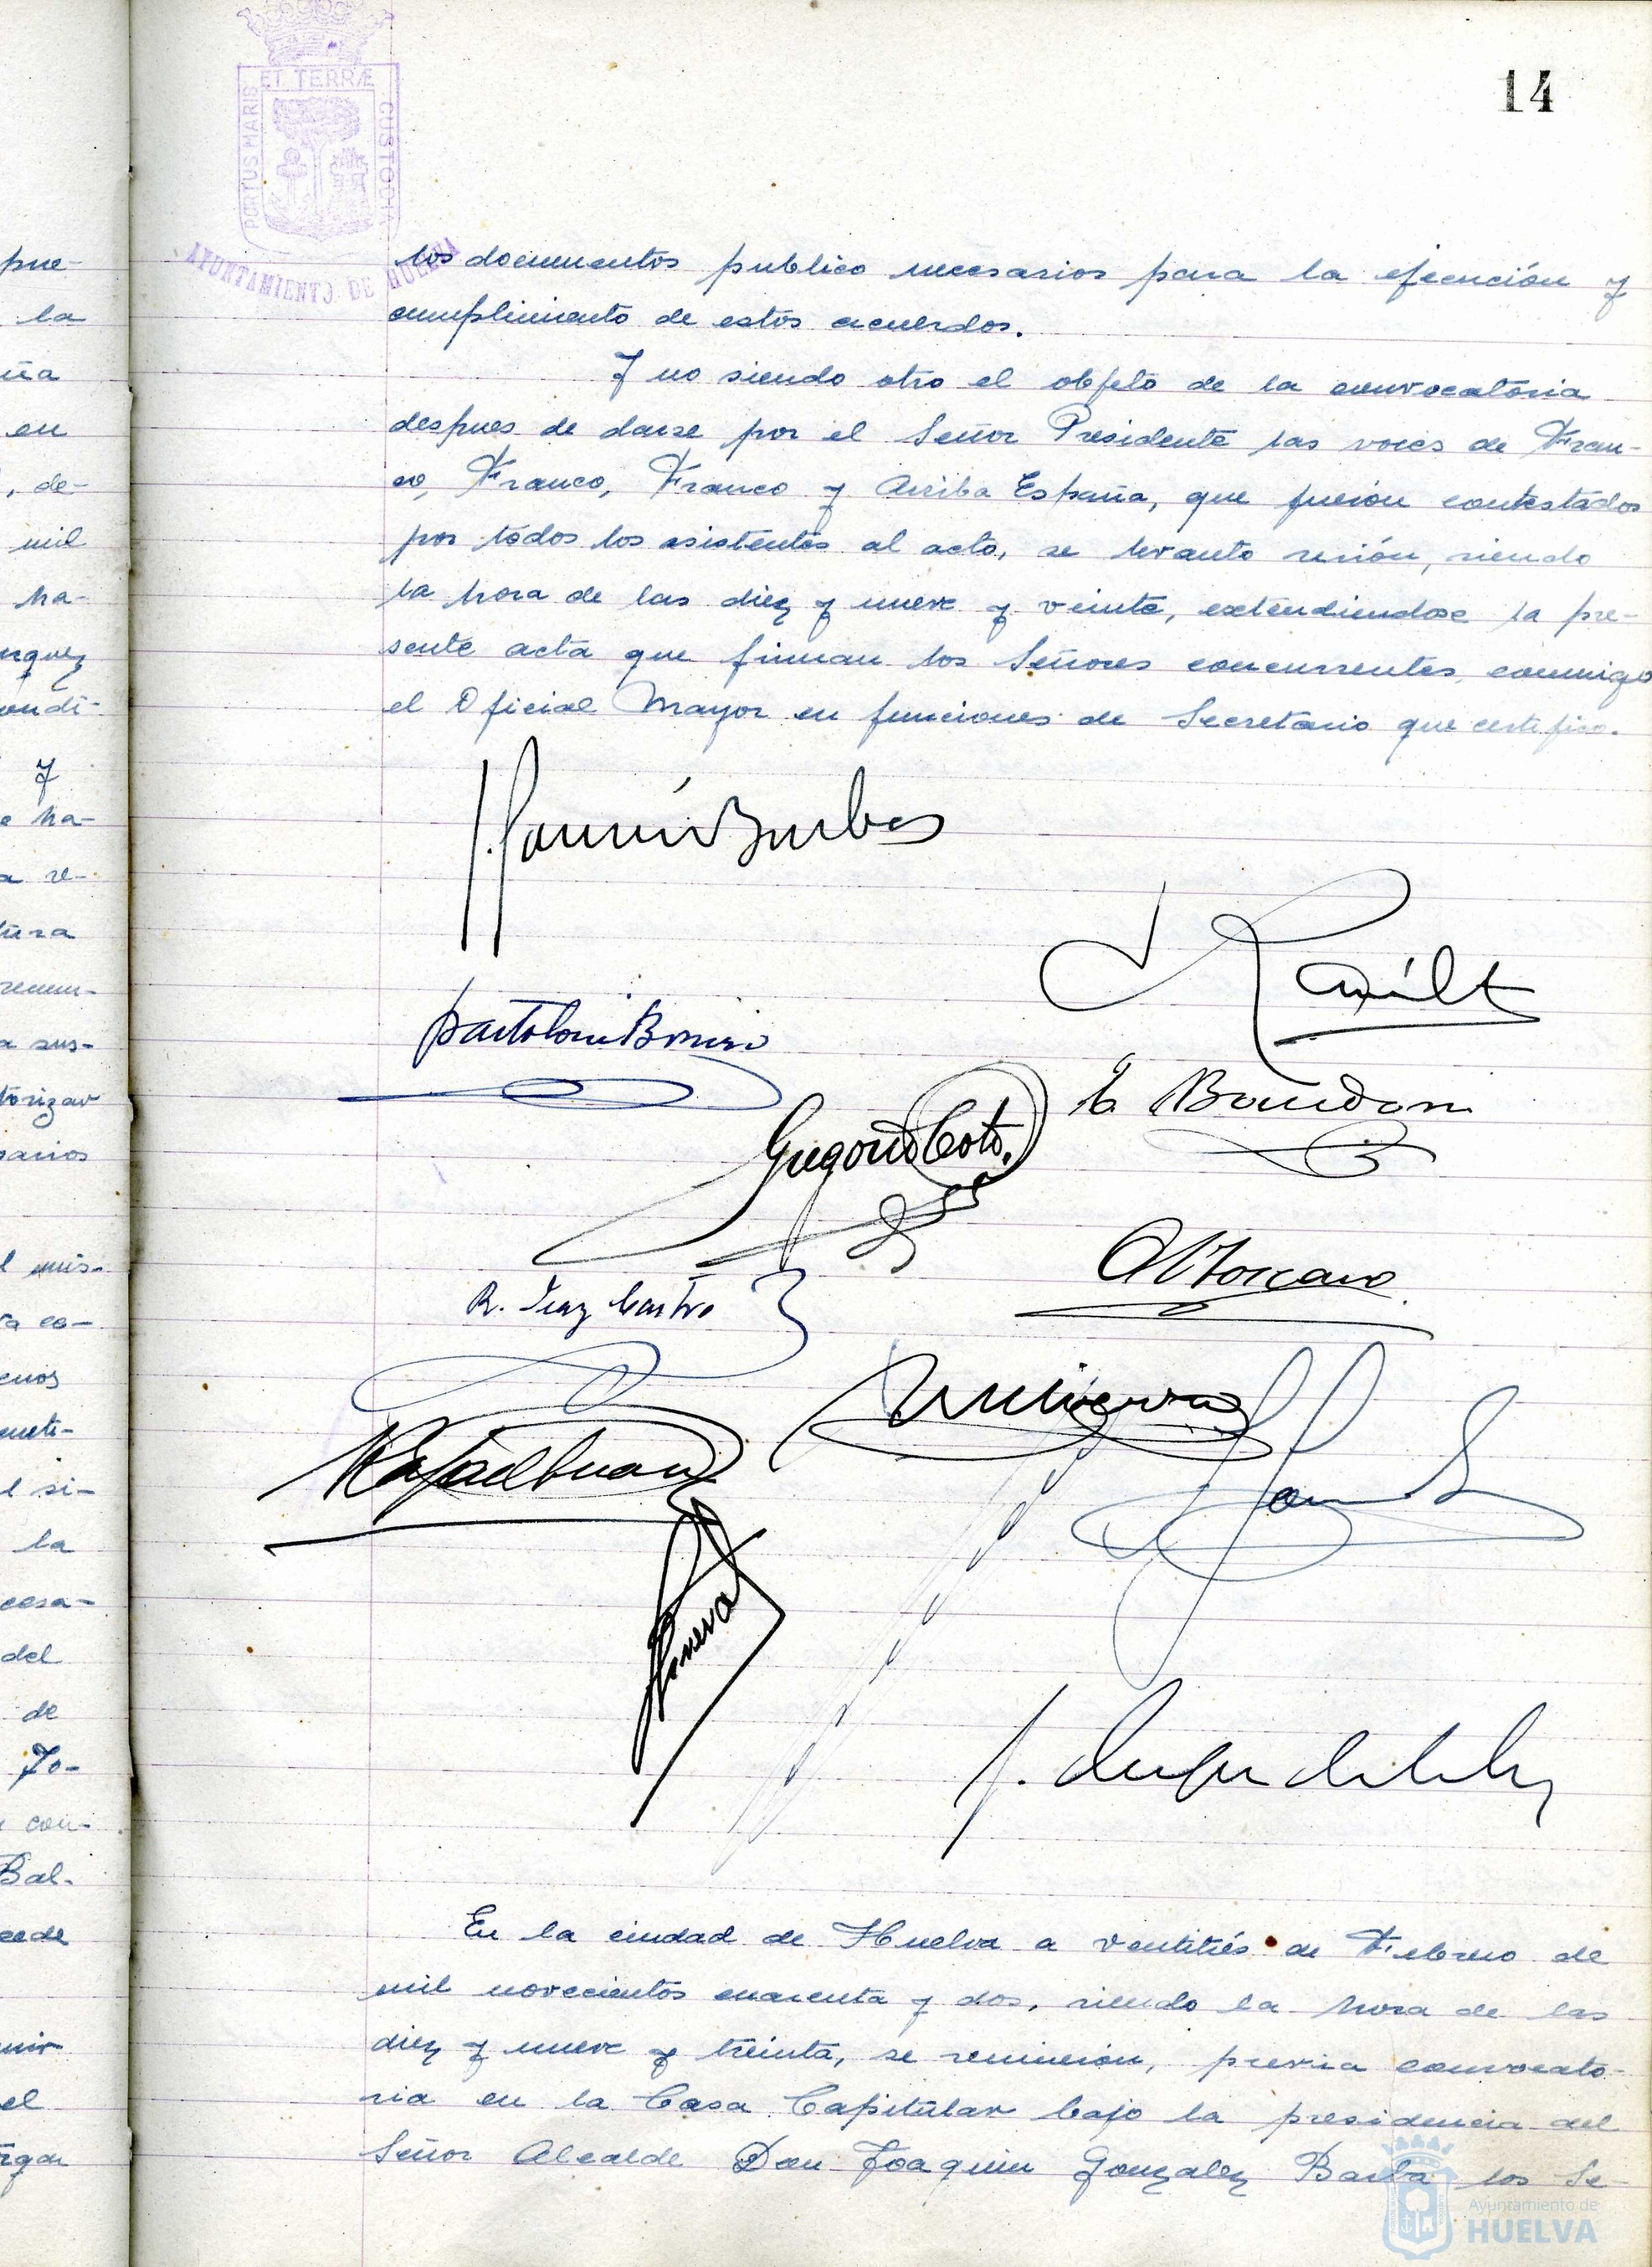 14
PORTUS MARIS ET TERRÆ CUSTODIA
AYUNTAMIENTO DE HUELVA
los documentos publico necesarios para la ejecución y
cumplimiento de estos acuerdos.
Y no siendo otro el objeto de la convocatoria
despues de darse por el Señor Presidente las voces de Fran-
co, Franco, Franco y Arriba España, que fueron contestados
por todos los asistentes al acto, se levanto sesión, siendo
la hora de las diez y nueve y veinte, extendiendose la pre-
sente acta que firman los Señores concurrentes conmigo
el Oficial Mayor en funciones de Secretario que certifico.
Gregorio Coto.
R. Diaz Castro
En la ciudad de Huelva a ventitrés de Febrero de
mil novecientos cuarenta y dos, siendo la hora de las
diez y nueve y treinta, se reunieron, previa convocato-
ria en la Casa Capitular bajo la presidencia del
Señor Alcalde Don Joaquin Gonzalez Barba los Se-
pue-
la
ña
en
, de-
mil
ha-
ondi-
y
ha-
re-
tura
sus-
torizar
sarios
mis-
co-
enos
si-
la
cesa-
del
de
Jo-
con-
Bal-
el
Ayuntamiento de
HUELVA